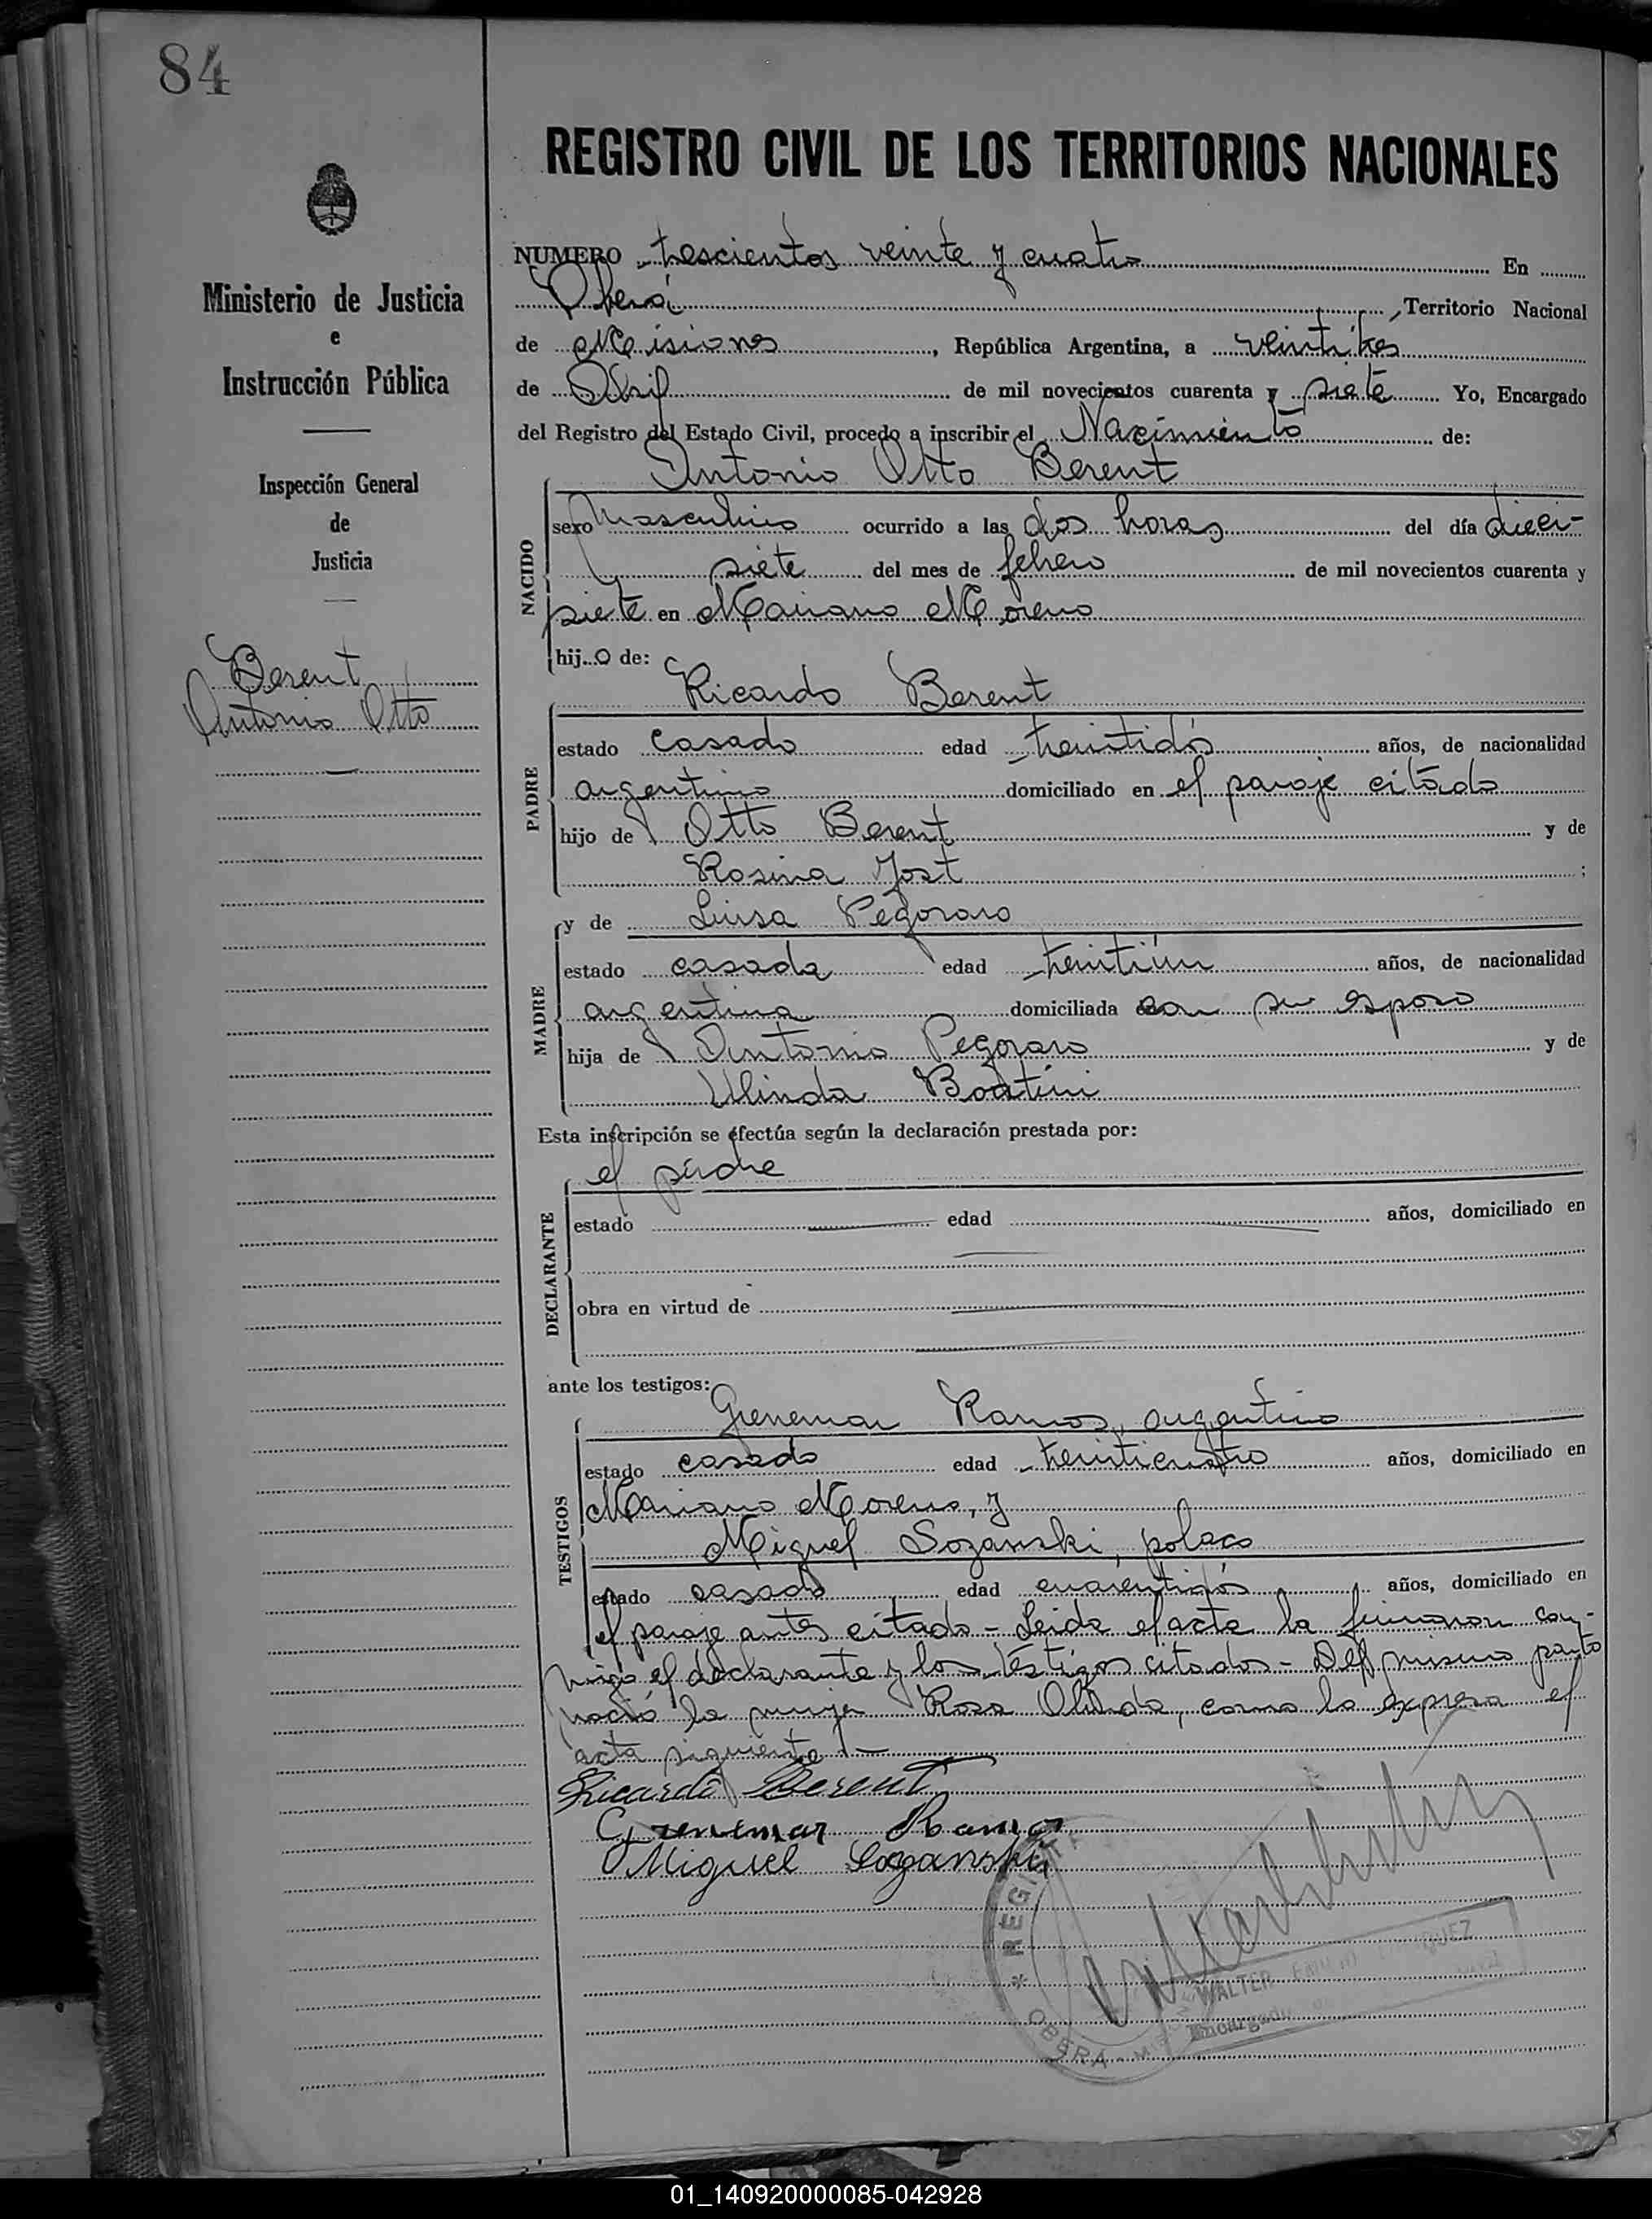 84
REGISTRO CIVIL DE LOS TERRITORIOS NACIONALES
Ministerio de Justicia
e
Instrucción Pública
Inspección General
de
Justicia
Berent
Antonio Otto
NUMERO trescientos veinte y cuatro En
Oberá, Territorio Nacional
de Misiones, República Argentina, a veintitres
de Abril de mil novecientos cuarenta y siete Yo, Encargado
del Registro del Estado Civil, procedo a inscribir el Nacimiento de:
Antonio Otto Berent
NACIDO
sexo Masculino ocurrido a las dos horas del día dieci-
siete del mes de febrero de mil novecientos cuarenta y
siete en Mariano Moreno
hijo de:
Ricardo Berent
PADRE
estado casado edad treintidós años, de nacionalidad
argentino domiciliado en el paraje citado
hijo de Otto Berent y de
Rosina Jost;
y de Luisa Pegoraro
MADRE
estado casada edad treintiún años, de nacionalidad
argentina domiciliada con su esposo
hija de Antonio Pegoraro y de
Ulinda Boatini
Esta inscripción se efectúa según la declaración prestada por:
el padre
DECLARANTE
estado edad años, domiciliado en
obra en virtud de
ante los testigos:
Grenemar Ramos, argentino
TESTIGOS
estado casado edad treinticuatro años, domiciliado en
Mariano Moreno, y
Miguel Sozanski, polaco
estado casado edad cuarentidós años, domiciliado en
el paraje antes citado - Leida el acta la firmaron con-
migo el declarante y los testigos citados - Del mismo parto
nació la mujer Rosa Olinda, como lo expresa el
acta siguiente -
Ricardo Berent
Grenemar Ramos
Miguel Sozanski
REGI
OBERA
WALTER
Encargado
01_140920000085-042928